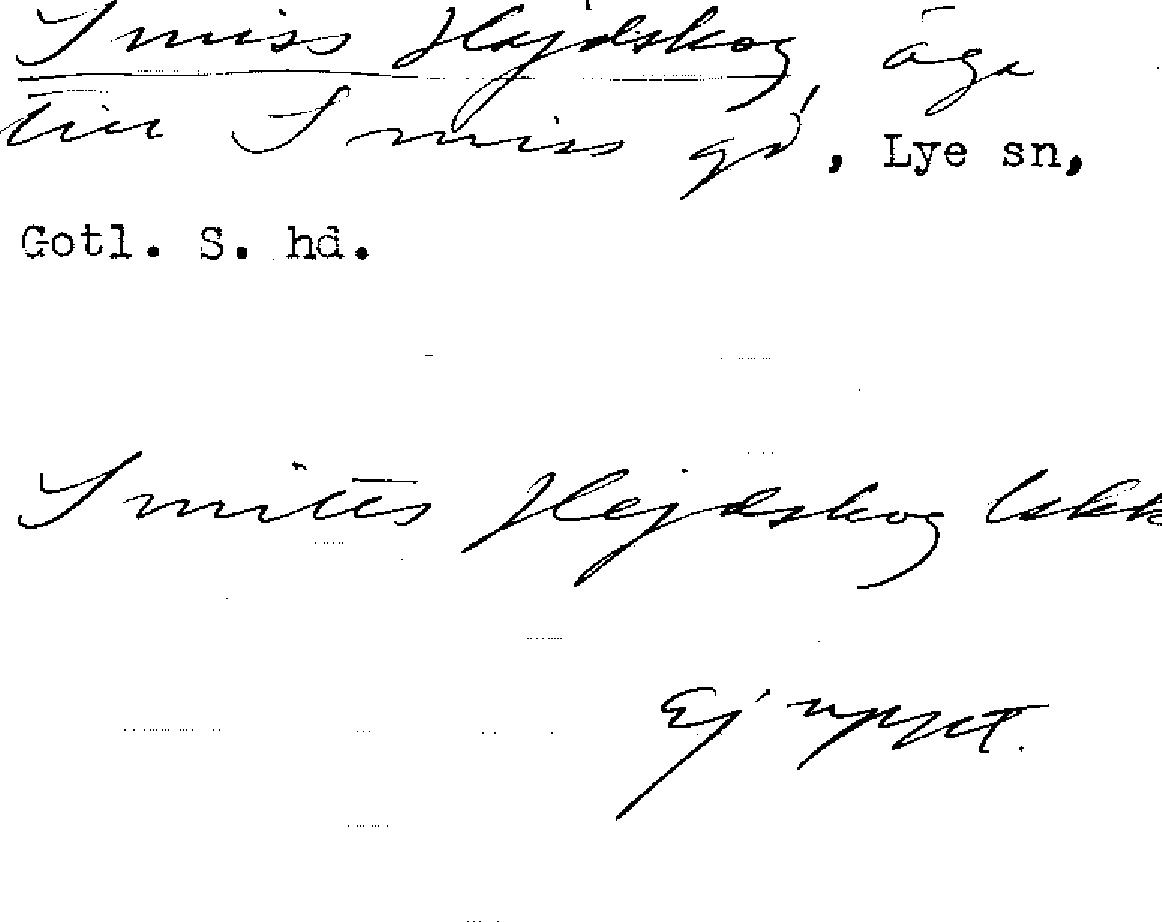 Smiss Hejdskog, äga
till Smiss gd, Lye sn,
Gotl. S. hd.
Smites Hejdskog
Ej uppt.